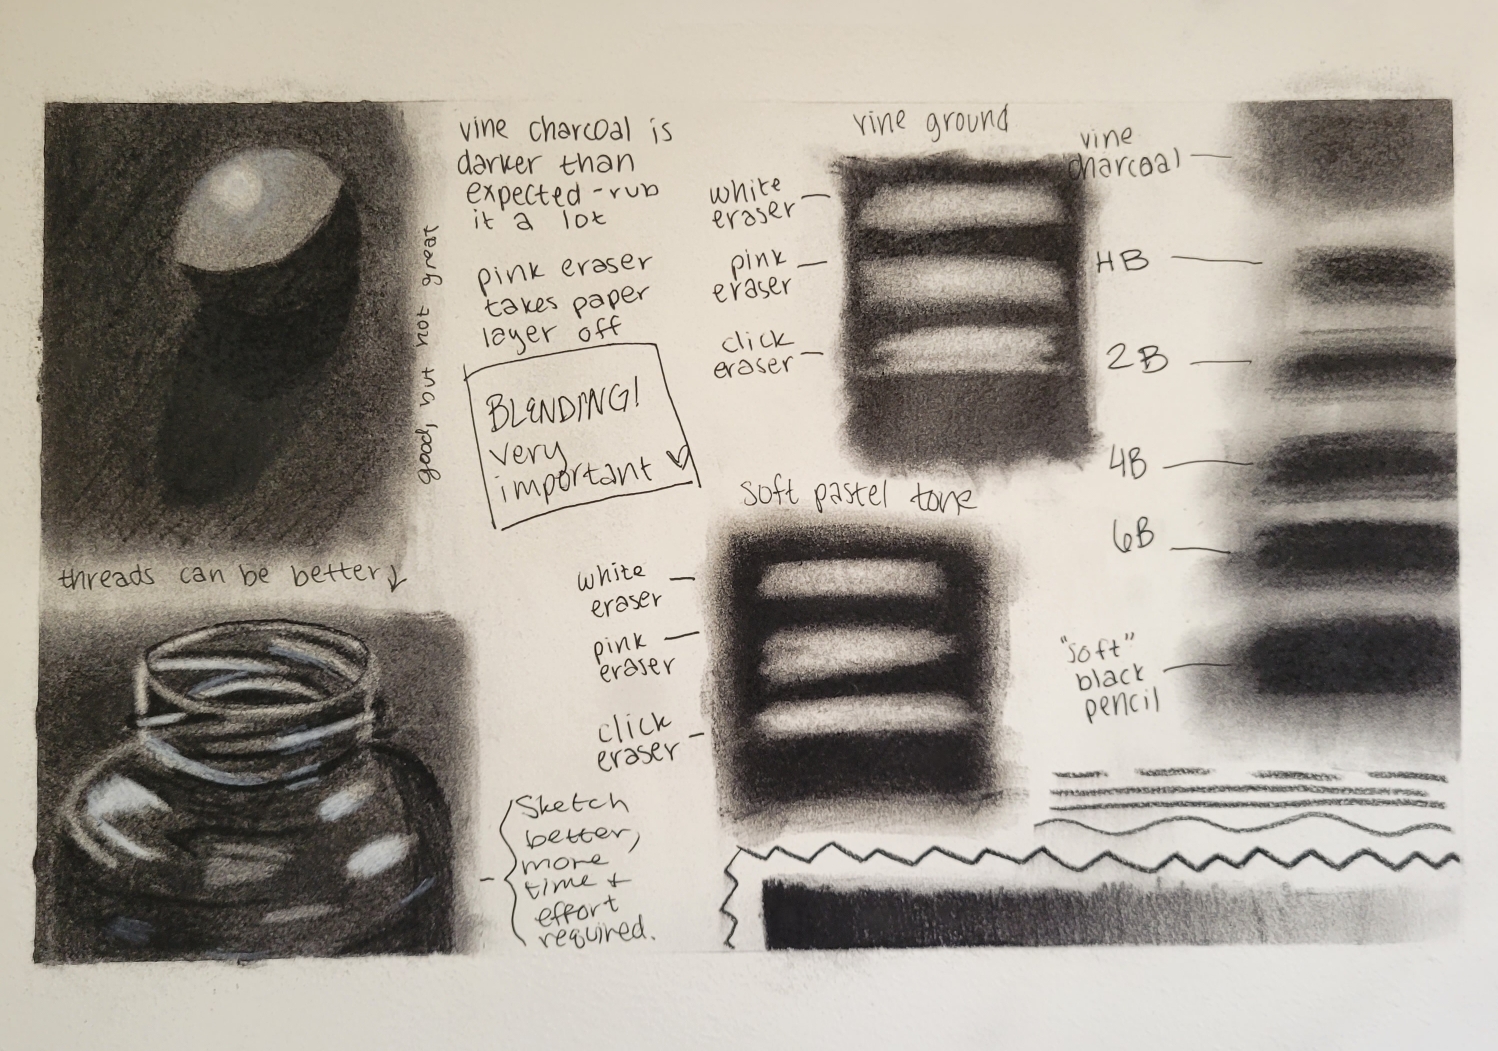 vine charcoal is
darker than
expected - rub
it a lot
pink eraser
takes paper
layer off
BLENDING!
very
important
good, but not great
threads can be better ↓
Sketch
better,
more
time +
effort
required.
vine ground
white
eraser
pink
eraser
click
eraser
soft pastel tone
white
eraser
pink
eraser
click
eraser
vine
charcoal
HB
2B
4B
6B
"soft"
black
pencil